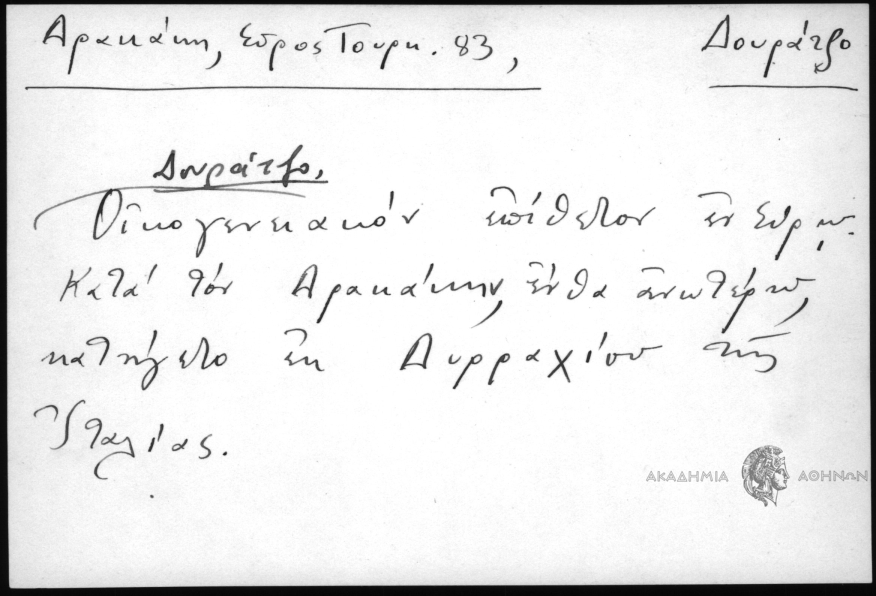 Δρακάκη, Σῦρος Τουρκ. 83, Δουράτζο
Δουράτζο.
Οἰκογενειακόν ἐπίθετον ἐν Σύρῳ.
Κατά τόν Δρακάκην, ἔνθα ἀνωτέρω,
κατήγετο ἐκ Δυρραχίου τῆς
Ἰταλίας.
ΑΚΑΔΗΜΙΑ ΑΘΗΝΩΝ